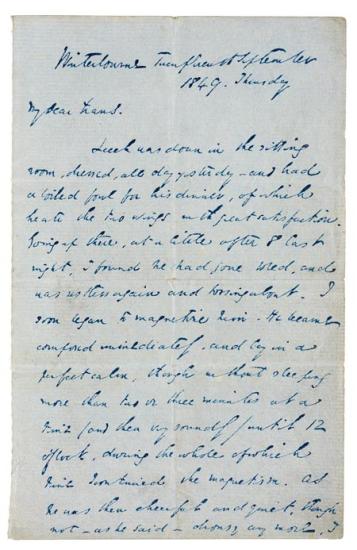 Winterbourne Twentieth September
1849. Thursday
My dear Evans.
Leech was down in the sitting
room, dressed, all day yesterday – and had
a boiled fowl for his dinner, of which
he ate the two wings with great satisfaction.
Going up there, at a little after 8 last
night, I found he had gone to bed, and
was restless again and tossing about. I
soon began to magnetize him. He became
composed immediately, and lay in a
perfect calm, though without sleeping
more than two or three minutes at a
time (and then very soundly) until 12
o'Clock, during the whole of which
time I continued the magnetism. As
he was then cheerful and quiet, though
not – as he said – drowsy any more, I